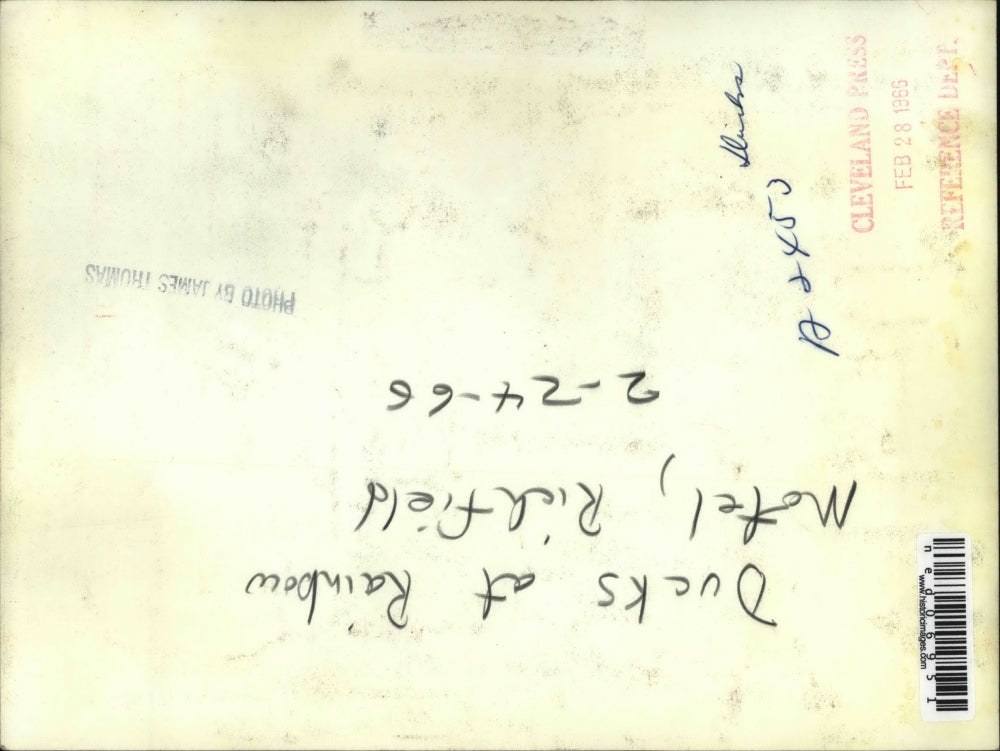 Ducks at Rainbow
Motel, Richfield
2-24-66
PHOTO BY JAMES THOMAS
A 2453
Ducks
CLEVELAND PRESS
FEB 28 1966
REFERENCE DEPT.
www.historicimages.com
ned06951